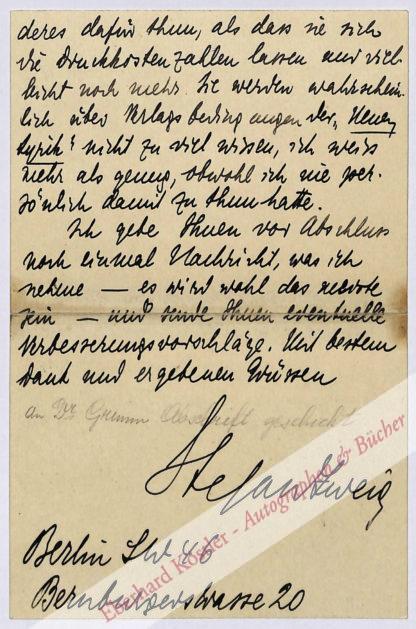 deres dafür thun, als dass sie sich
die Druckkosten zallen lassen und viel-
leicht noch mehr. Sie werden wahrschein-
lich über Verlagsbedingungen der „Neuen
Lyrik“ nicht zu viel wissen, ich weiss
mehr als genug, obwohl ich nie per-
sönlich damit zu thun hatte.
Ich gebe Ihnen vor Abschluss
noch einmal Nachricht, was ich
nehme — es wird wohl das
sein — und sende Ihnen eventuelle
Verbesserungsvorschläge. Mit bestem
Dank und ergebenen Grüssen
an Dr. Grimm Abschrift geschickt
Stefan Zweig
Berlin SW 46
Bernburgerstrasse 20
Eberhard Köstler - Autographen & Bücher